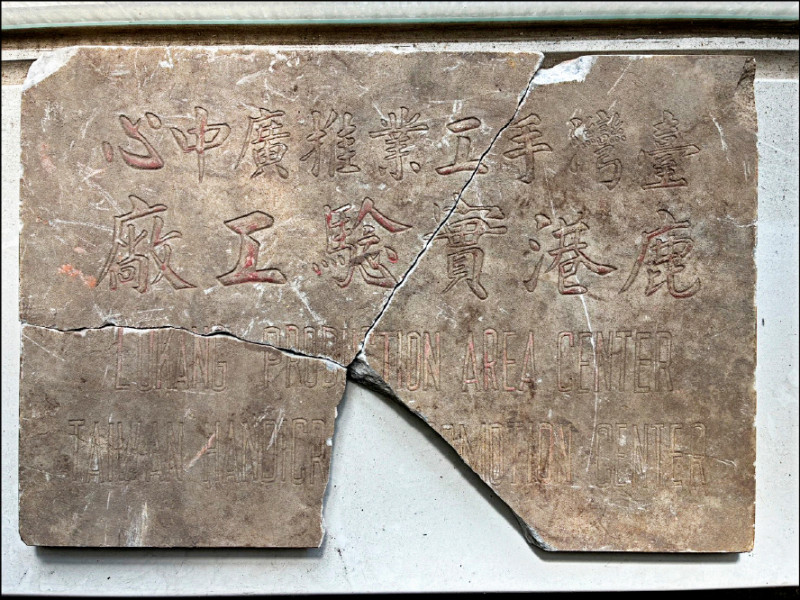 臺灣手工業推廣中心
鹿港實騐工廠
LUKANG PRODUCTION AREA CENTER
TAIWAN HANDICR MOTION CENTER